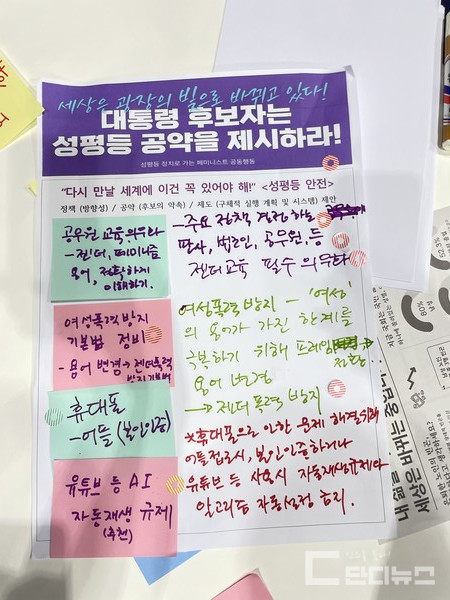 세상은 광장의 빛으로 바뀌고 있다!
대통령 후보자는
성평등 공약을 제시하라!
성평등 정치로 가는 페미니스트 공동행동
"다시 만날 세계에 이건 꼭 있어야 해!" <성평등 안전>
정책 (방향성) / 공약 (후보의 약속) / 제도 (구체적 실행 계획 및 시스템) 제안
공무원 교육 의무화
- 젠더, 페미니즘
용어, 정확하게
이해하기.
- 주요 정책 결정 하는
판사, 법조인, 공무원, 등
젠더교육 필수 의무화
여성폭력방지
기본법 정비
- 용어 변경 → 젠더폭력
방지기본법
여성폭력 방지 - '여성'
의 용어가 가진 한계를
극복하기 위해 프레임 전환..
용어 변경
→ 젠더폭력 방지
휴대폰
- 어플 (본인인증)
*휴대폰으로 인한 문제 해결 위해
어플접근시, 본인인증하거나
유튜브 등 AI
자동재생 규제
(추천)
유튜브 등 사용시 자동재생규제나
알고리즘 자동설정 금지.
내 삶을
세상을 바꾸는
80%
단디뉴스